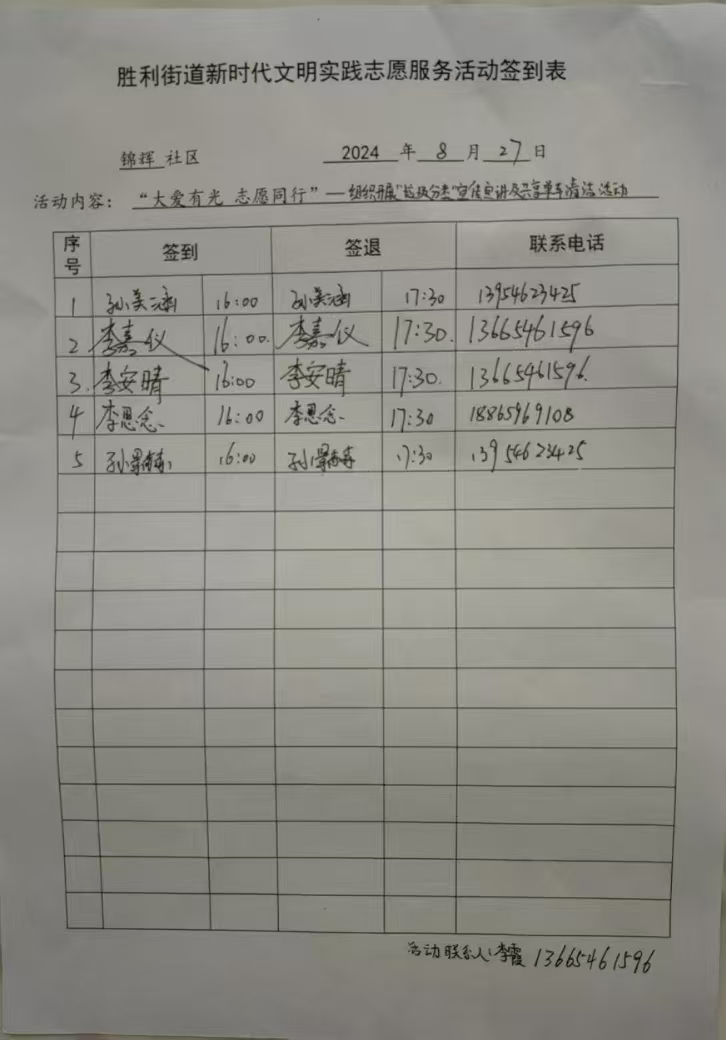 胜利街道新时代文明实践志愿服务活动签到表
锦辉 社区 2024 年 8 月 27 日
活动内容： “大爱有光 志愿同行”—组织开展“垃圾分类”宣传宣讲及共享单车清洁活动
序号 签到 签退 联系电话
1 孙美涵 16:00 孙美涵 17:30 13954623425
2 李嘉仪 16:00. 李嘉仪 17:30. 13665461596
3. 李安晴 16:00 李安晴 17:30. 13665461596.
4 李思念 16:00 李思念 17:30 18865969108
5 16:00 17:30 13954623425
活动联系人：李霞 13665461596